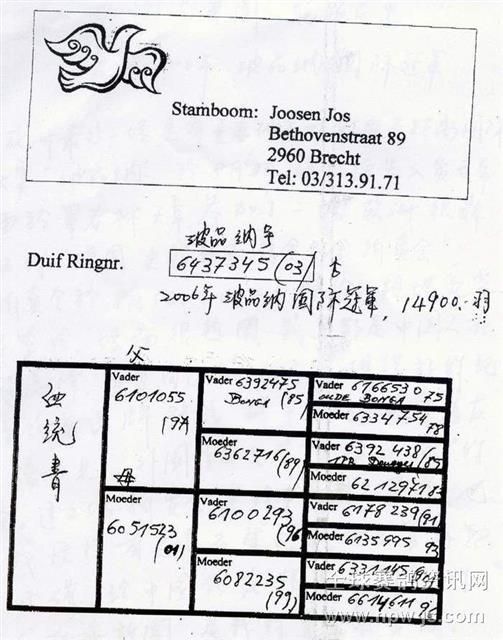 Stamboom: Joosen Jos
Bethovenstraat 89
2960 Brecht
Tel: 03/313.91.71
波品纳号
Duif Ringnr. 6437345 (03)
2006年 波品纳国际冠军, 14900.羽
血统书
父
Vader
6101055
(97
母
Moeder
6051523
(01)
Vader 6392475
BONGA (85)
Moeder
6362716 (89)
Vader
6100293
(96
Moeder
6082235
(99)
Vader 6166530 75
OUDE BONGA
Moeder 6334754
78
Vader 6392438 (85
Moeder
6212971 83
Vader
6178239 (91)
Moeder
6135995 93
Vader
6331145
Moeder
6614611 95
全球赛鸽资讯网